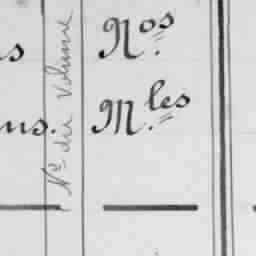 s
Nos
ns.
Mles
No du Volume